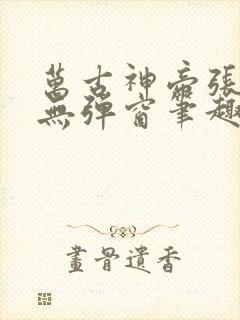 萬古神帝張
無彈窗筆趣
畫骨遺香